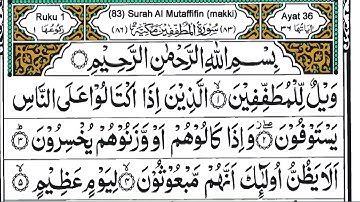 Ruku 1 (83) Surah Al Mutaffifin (makki) Ayat 36
رُكُوْعُهَا ١ (٨٣) سُوْرَةُ الْمُطَفِّفِيْنَ مَكِّيَّةٌ (٨٦) اٰيَاتُهَا ٣٦
بِسْمِ اللّٰهِ الرَّحْمٰنِ الرَّحِيْمِ
وَيْلٌ لِّلْمُطَفِّفِيْنَ ۙ﴿١﴾ الَّذِيْنَ اِذَا اكْتَالُوْا عَلَى النَّاسِ
يَسْتَوْفُوْنَ ۖ﴿٢﴾ وَاِذَا كَالُوْهُمْ اَوْ وَّزَنُوْهُمْ يُخْسِرُوْنَ ؕ﴿٣﴾
اَلَا يَظُنُّ اُولٰٓئِكَ اَنَّهُمْ مَّبْعُوْثُوْنَ ۙ﴿٤﴾ لِيَوْمٍ عَظِيْمٍ ۙ﴿٥﴾